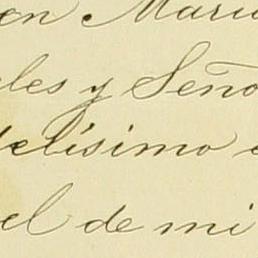 en Mari
les y Seño
delísimo
el de mi